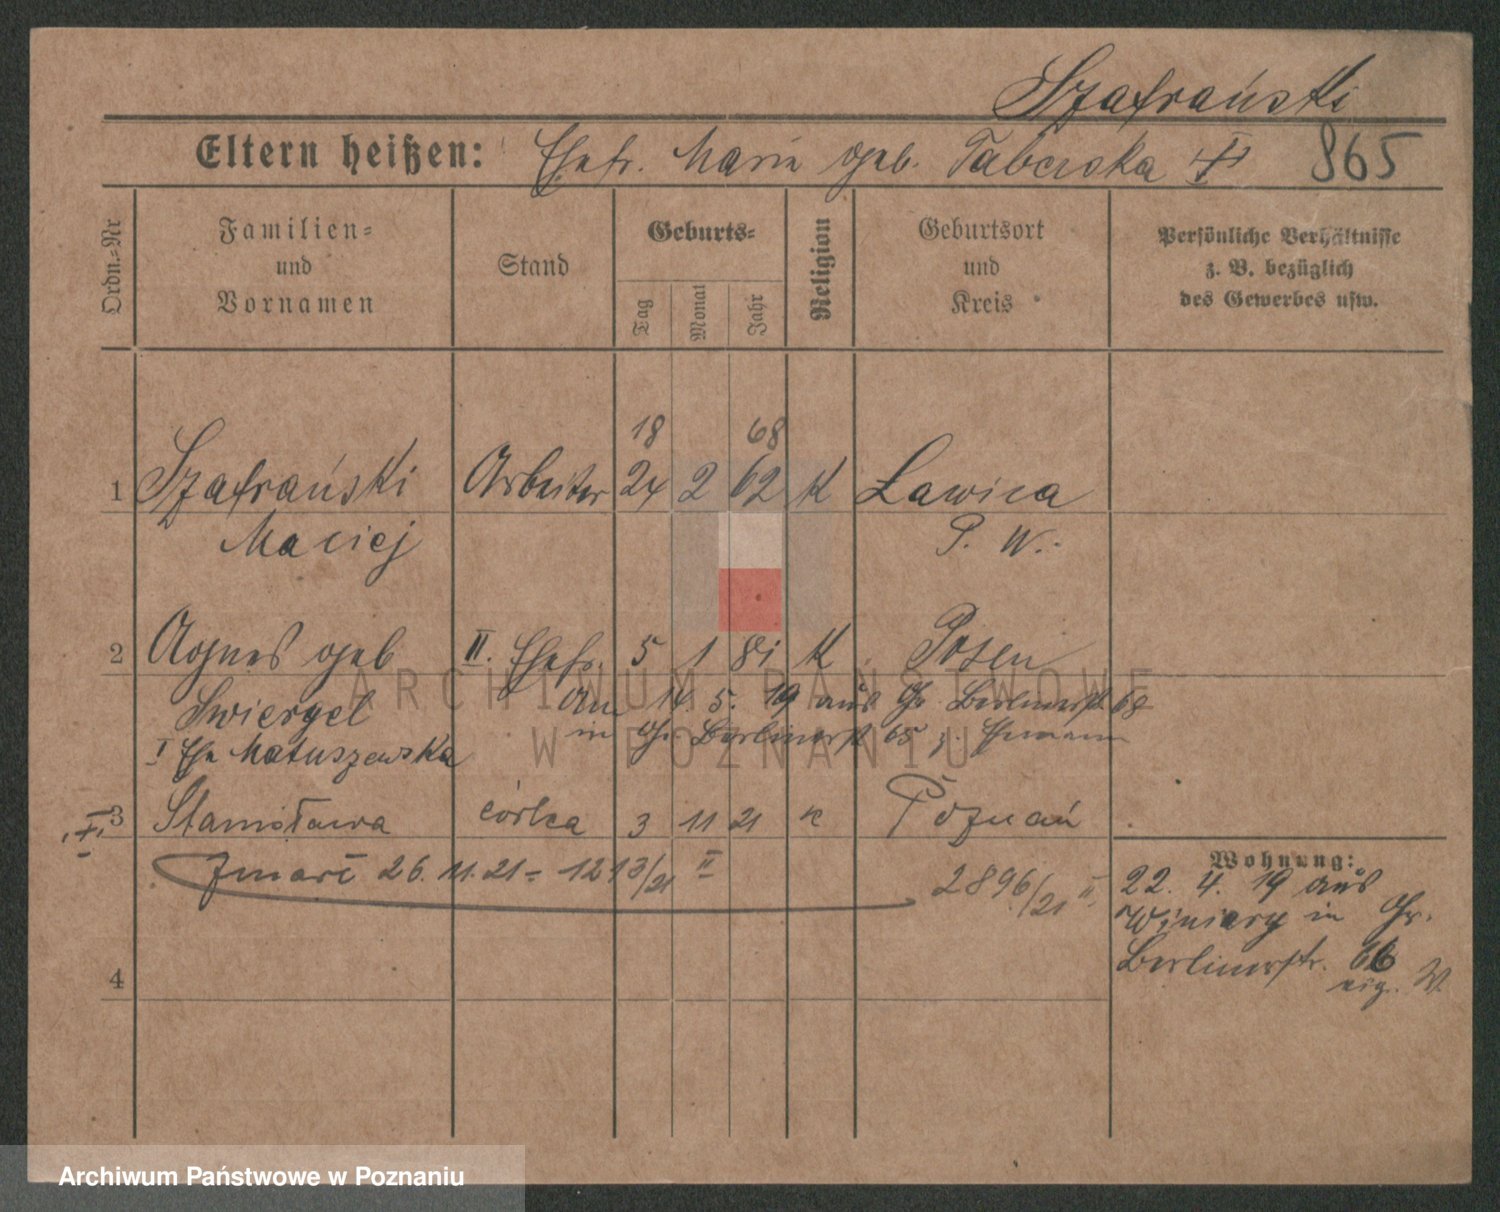 Szafrański
Eltern heißen: Ehefr. Maria geb. Taberska 865
Ordn.-Nr
Familien- und Vornamen
Stand
Geburts-
Tag
Monat
Jahr
Religion
Geburtsort und Kreis
Persönliche Verhältnisse z. B. bezüglich des Gewerbes usw.
18 68
1 Szafrański Arbeiter 24 2 62 K Ławica
Maciej P. W.
2 Agnes geb II. Ehefr. 5 1 81 K Posen
Swiergel Am 14. 5. 19 aus Gr. Berlinerst 68
in Gr. Berlinerst 65 z. Ehemann
I Ehe Matuszewska
3 Stanisława córka 3 11 21 K Poznań
Zmarł 26. 11. 21 = 1213/21 II 2896/21 II
Wohnung:
22. 4. 19 aus
Winiary in Gr.
Berlinerstr. 66
eig. W.
4
ARCHIWUM PAŃSTWOWE
W POZNANIU
Archiwum Państwowe w Poznaniu